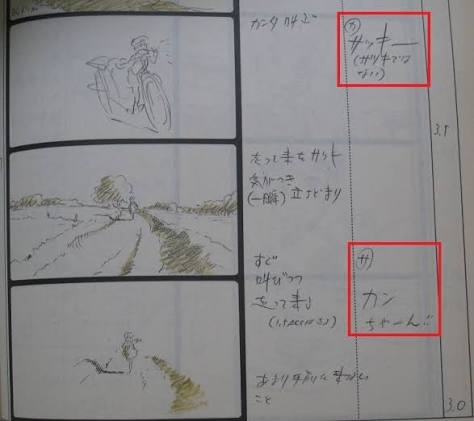 カンタ 叫ぶ
㋕
サッキー
(サツキでは
ない)
3.5
走って来る
気がつき
(一瞬) 立ちどまり
すぐ
叫びつつ
走って来る
㋚
カン
ちゃーん!!
あまり手前に来ない
こと
3.0